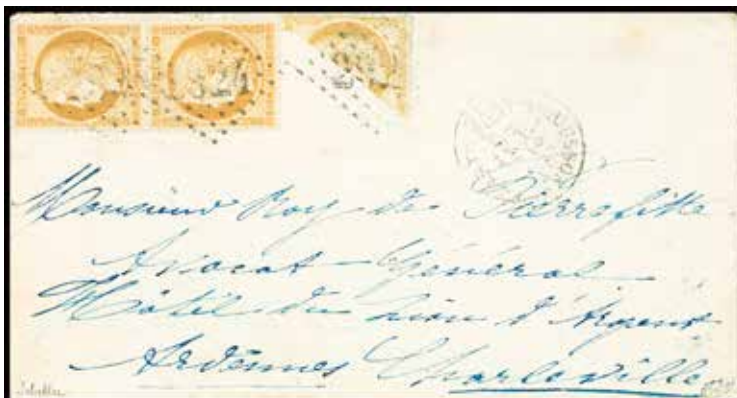 Monsieur Roy de Pierrefitte
Avocat-Général
Hôtel du Lion d'Argent
Ardennes Charleville